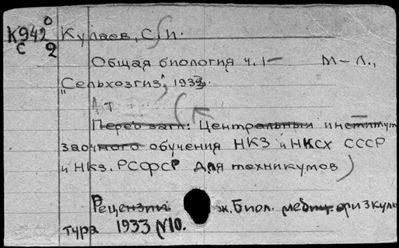 К942 Кулаев, С. И.
С 2
Общая биология ч. I— М–Л.,
"Сельхозгиз", 1933.
Перед загл: Центральный институт
заочного обучения НКЗ и НКСХ СССР
и НКЗ. РСФСР Для техникумов)
Рецензии ж. Биол. физкуль
тура 1933 №10.